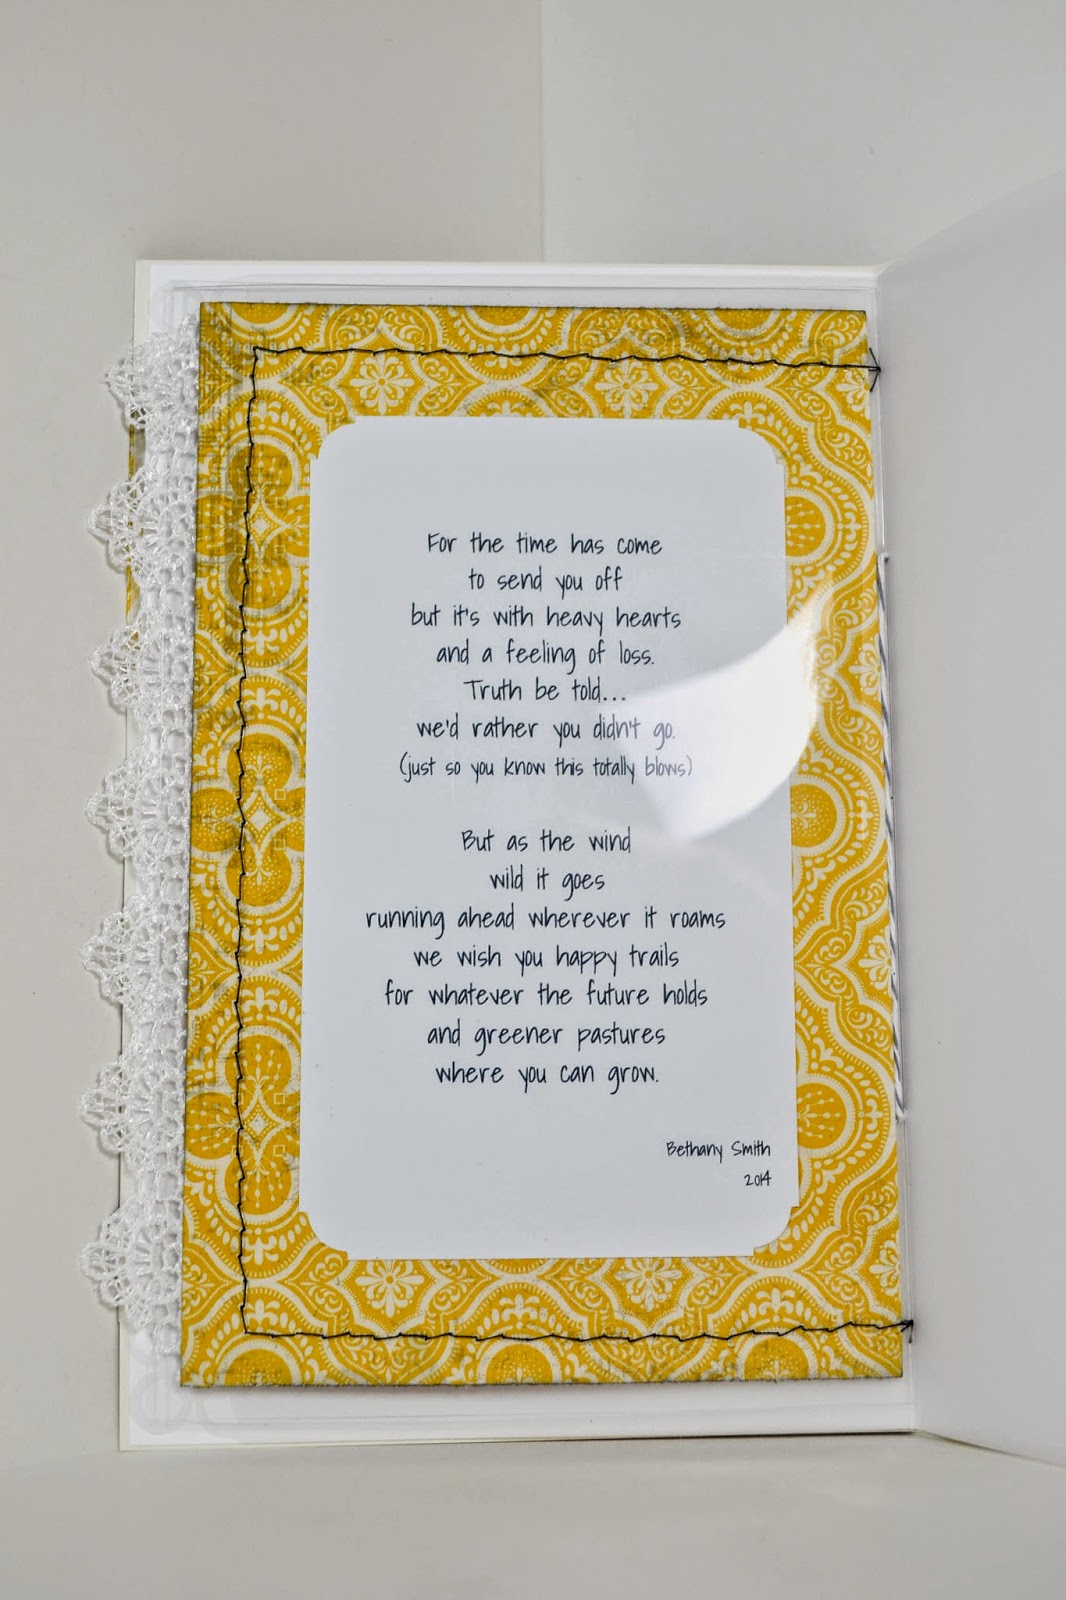 For the time has come
to send you off
but it's with heavy hearts
and a feeling of loss.
Truth be told...
we'd rather you didn't go.
(just so you know this totally blows)
But as the wind
wild it goes
running ahead wherever it roams
we wish you happy trails
for whatever the future holds
and greener pastures
where you can grow.
Bethany Smith
2014